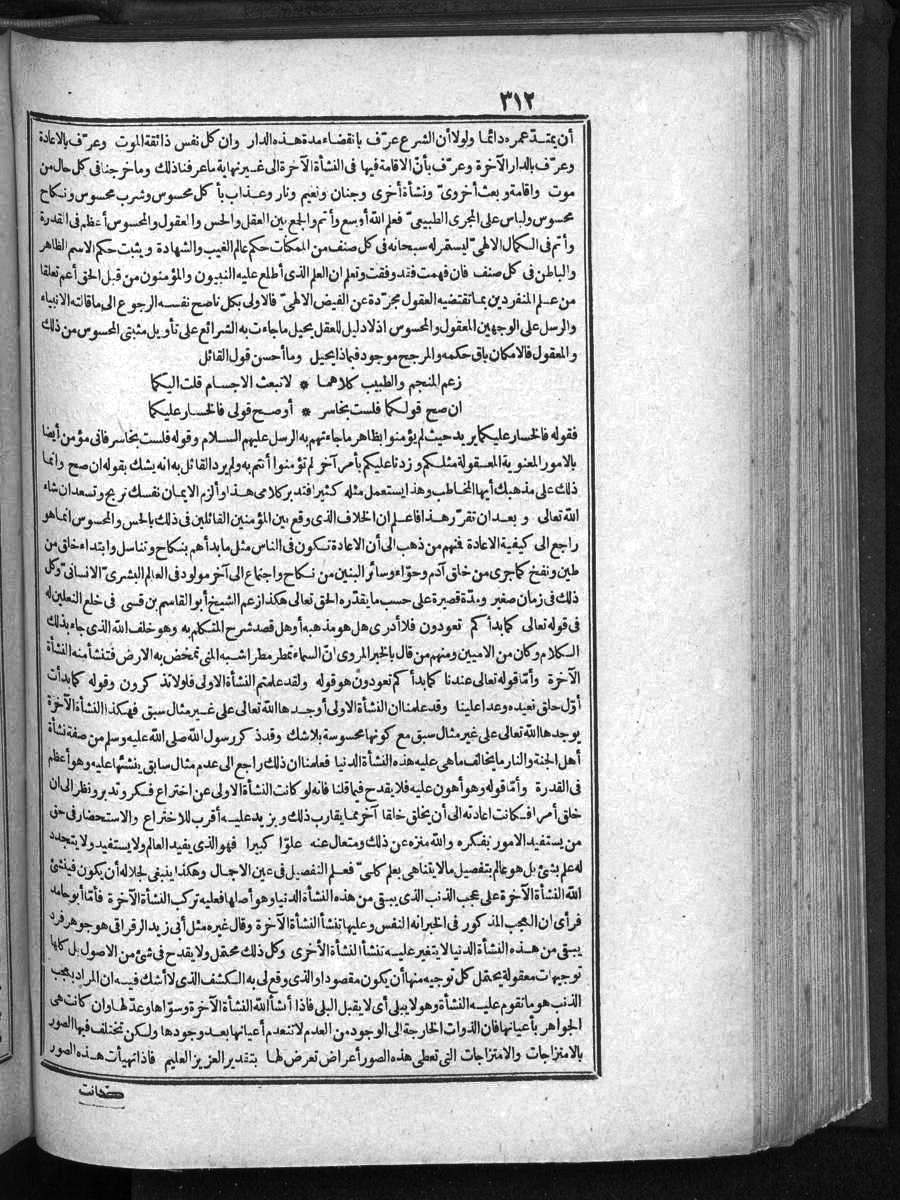 ٣١٢
أن يمتدّ عمره دائما ولولا أن الشرع عرّف بانقضاء مدة هذه الدار وان كل نفس ذائقة الموت وعرّف بالاعادة
وعرّف بالدار الآخرة وعرّف بأنّ الاقامة فيها فى النشأة الآخرة الى غير نهاية ما عرفنا ذلك وما خرجنا فى كل حال من
موت واقامة وبعث أخروىّ ونشأة أخرى وجنان ونعيم ونار وعذاب بأكل محسوس وشرب محسوس ونكاح
محسوس ولباس على المجرى الطبيعىّ فعلم اللّه أوسع وأتم والجمع بين العقل والحس والمعقول والمحسوس أعظم فى القدرة
وأتم فى الكمال الالهىّ ليستمر له سبحانه فى كل صنف من الممكنات حكم عالم الغيب والشهادة ويثبت حكم الاسم الظاهر
والباطن فى كل صنف فان فهمت فقد وفقت وتعلم ان العلم الذى أطلع عليه النبيون والمؤمنون من قبل الحق أعم تعلقا
من علم المنفردين بما تقتضيه العقول مجرّدة عن الفيض الالهىّ فالاولى بكل ناصح نفسه الرجوع الى ما قالته الانبياء
والرسل على الوجهين المعقول والمحسوس اذ لا دليل للعقل يحيل ما جاءت به الشرائع على تأويل مثبتى المحسوس من ذلك
والمعقول فالامكان باق حكمه والمرجح موجود فبماذا يحيل وما أحسن قول القائل
زعم المنجم والطبيب كلاهما * لا تبعث الاجسام قلت اليكما
ان صح قولكما فلست بخاسر * أو صح قولى فالخسار عليكما
فقوله فالخسار عليكما يريد حيث لم يؤمنوا بظاهر ما جاءتهم به الرسل عليهم السلام وقوله فلست بخاسر فانى مؤمن أيضا
بالامور المعنوية المعقولة مثلكم وزدنا عليكم بأمر آخر لم تؤمنوا أنتم به ولم يرد القائل به انه يشك بقوله ان صح وانما
ذلك على مذهبك أيها المخاطب وهذا يستعمل مثله كثيرا فتدبر كلامى هذا وألزم الايمان نفسك تربح وتسعد ان شاء
اللّه تعالى وبعد ان تقرّر هذا فاعلم ان الخلاف الذى وقع بين المؤمنين القائلين فى ذلك بالحس والمحسوس انما هو
راجع الى كيفية الاعادة فمنهم من ذهب الى أن الاعادة تكون فى الناس مثل ما بدأهم بنكاح وتناسل وابتداء خلق من
طين ونفخ كما جرى من خلق آدم وحوّاء وسائر البنين من نكاح واجتماع الى آخر مولود فى العالم البشرىّ الانسانىّ وكل
ذلك فى زمان صغير ومدّة قصيرة على حسب ما يقدّره الحق تعالى هكذا زعم الشيخ أبو القاسم بن قسى فى خلع النعلين له
فى قوله تعالى كما بدأكم تعودون فلا أدرى هل هو مذهبه أو هل قصد شرح المتكلم به وهو خلف اللّه الذى جاء بذلك
الكلام وكان من الاميين ومنهم من قال بالخبر المروى انّ السماء تمطر مطرا شبه المنى تمخض به الارض فتنشأ منه النشأة
الآخرة وأمّا قوله تعالى عندنا كما بدأكم تعودون هو قوله ولقد علمتم النشأة الاولى فلولا تذكرون وقوله كما بدأنا
أوّل خلق نعيده وعدا علينا وقد علمنا ان النشأة الاولى أوجدها اللّه تعالى على غير مثال سبق فهكذا النشأة الآخرة
يوجدها اللّه تعالى على غير مثال سبق مع كونها محسوسة بلا شك وقد ذكر رسول اللّه صلى اللّه عليه وسلم من صفة نشأة
أهل الجنة والنار ما يخالف ما هى عليه هذه النشأة الدنيا فعلمنا ان ذلك راجع الى عدم مثال سابق ينشئها عليه وهو أعظم
فى القدرة وأمّا قوله وهو أهون عليه فلا يقدح فيما قلنا فانه لو كانت النشأة الاولى عن اختراع فكر وتدبر ونظر الى ان
خلق أمرا فكانت اعادته الى أن يخلق خلقا آخر مما يقارب ذلك ويزيد عليه أقرب للاختراع والاستحضار فى حق
من يستفيد الامور بفكره واللّه منزه عن ذلك ومتعال عنه علوّا كبيرا فهو الذى يفيد العالم ولا يستفيد ولا يتجدد
له علم بشئ بل هو عالم بتفصيل ما لا يتناهى بعلم كلىّ فعلم التفصيل فى عين الاجمال وهكذا ينبغى لجلاله أن يكون فينشئ
اللّه النشأة الآخرة على عجب الذنب الذى يبقى من هذه النشأة الدنيا وهو أصلها فعليه تركب النشأة الآخرة فأمّا أبو حامد
فرأى ان العجب المذكور فى الخبر انه النفس وعليها تنشأ النشأة الآخرة وقال غيره مثل أبى زيد الرقراقى هو جوهر فرد
يبقى من هذه النشأة الدنيا لا يتغير عليه تنشأ النشأة الاخرى وكل ذلك محتمل ولا يقدح فى شئ من الاصول بل كلها
توجيهات معقولة يحتمل كل توجيه منها أن يكون مقصودا والذى وقع لى به الكشف الذى لا أشك فيه ان المراد بعجب
الذنب هو ما تقوم عليه النشأة وهو لا يبلى أى لا يقبل البلى فاذا أنشأ اللّه النشأة الآخرة وسوّاها وعدّلها وان كانت هى
الجواهر بأعيانها فان الذوات الخارجة الى الوجود من العدم لا تنعدم أعيانها بعد وجودها ولكن تختلف فيها الصور
بالامتزاجات والامتزاجات التى تعطى هذه الصور أعراض تعرض لها بتقدير العزيز العليم فاذا تهيأت هذه الصور
كانت